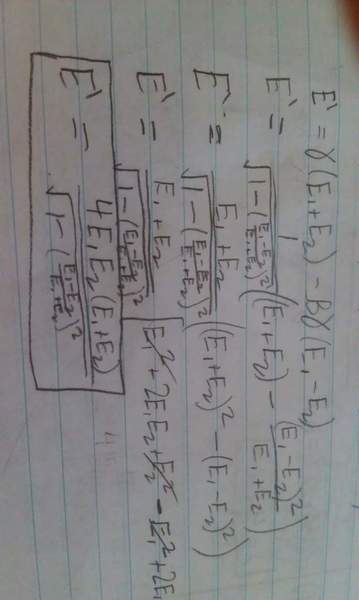 E' = γ(E₁+E₂) − Bγ(E₁−E₂)
E' = 1/√(1−((E₁−E₂)/(E₁+E₂))²) ((E₁+E₂) − (E₁−E₂)²/(E₁+E₂))
E' = (E₁+E₂)/√(1−((E₁−E₂)/(E₁+E₂))²) ((E₁+E₂)² − (E₁−E₂)²)
E' = (E₁+E₂)/√(1−((E₁−E₂)/(E₁+E₂))²) [E₁² + 2E₁E₂ + E₂² − E₁² + 2E₁
E' = 4E₁E₂(E₁+E₂)/√(1−((E₁−E₂)/(E₁+E₂))²)